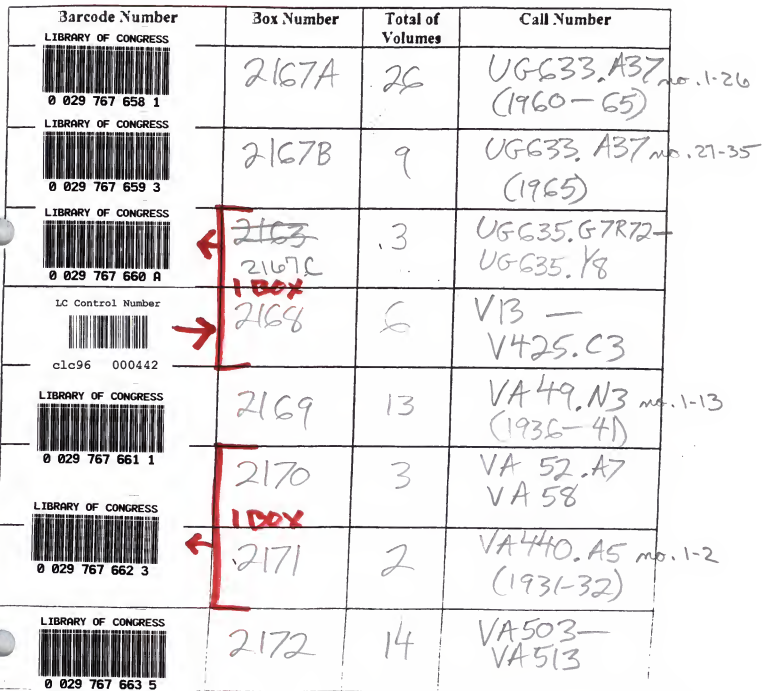 Barcode Number Box Number Total of Volumes Call Number
LIBRARY OF CONGRESS
0 029 767 658 1
2167A 26 UG633.A37 no. 1-26
(1960-65)
LIBRARY OF CONGRESS
0 029 767 659 3
2167B 9 UG633.A37 no. 27-35
(1965)
LIBRARY OF CONGRESS
0 029 767 660 A
2163 .3 UG635.G7R72-
2167C UG635.Y8
1 BOX
LC Control Number
clc96 000442
2168 6 V13 -
V425.C3
LIBRARY OF CONGRESS
0 029 767 661 1
2169 13 VA49.N3 no. 1-13
(1936-41)
2170 3 VA 52.A7
VA 58
1 BOX
LIBRARY OF CONGRESS
0 029 767 662 3
2171 2 VA440.A5 no. 1-2
(1931-32)
LIBRARY OF CONGRESS
0 029 767 663 5
2172 14 VA503-
VA513